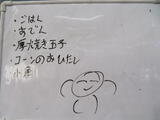 ・ごはん
・おでん
・厚焼き玉子
・コーンのおひたし